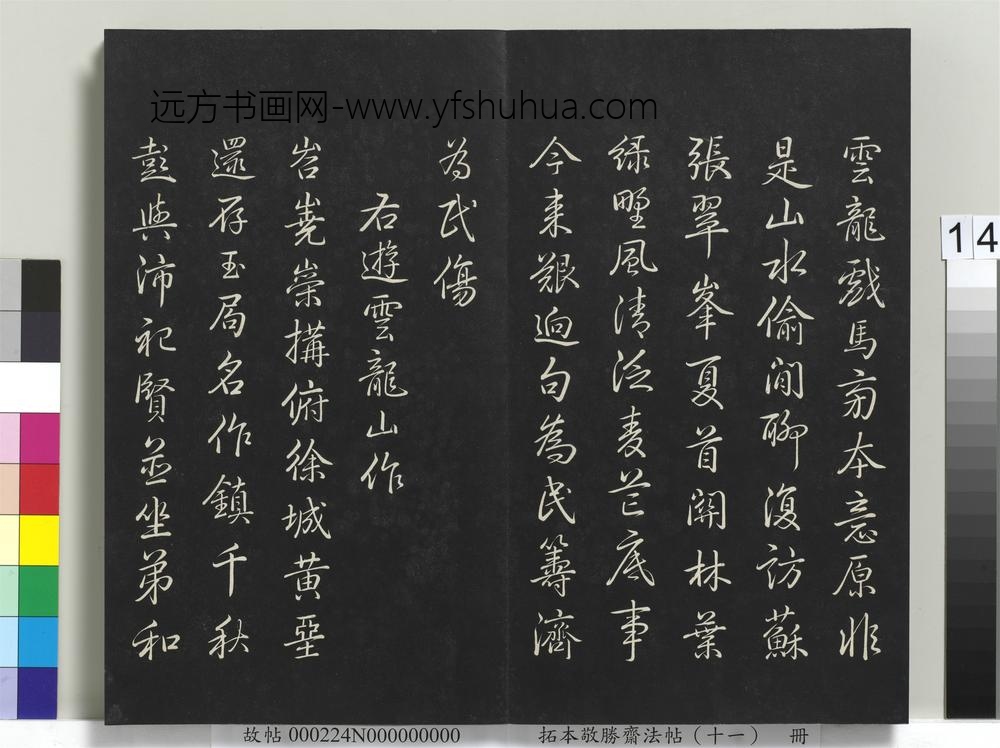 远方书画网-www.yfshuhua.com
雲龍戲馬旁本意原非
是山水偷閒聊復訪蘇
張翠峯夏首開林葉
綠野風清泛麥芒底事
今來艱逈句為民籌濟
為民傷
右遊雲龍山作
岧嶤崇搆俯徐城黃堊
還存玉局名作鎮千秋
彭與沛祀賢並坐弟和
14
故帖 000224N000000000
拓本敬勝齋法帖（十一） 冊